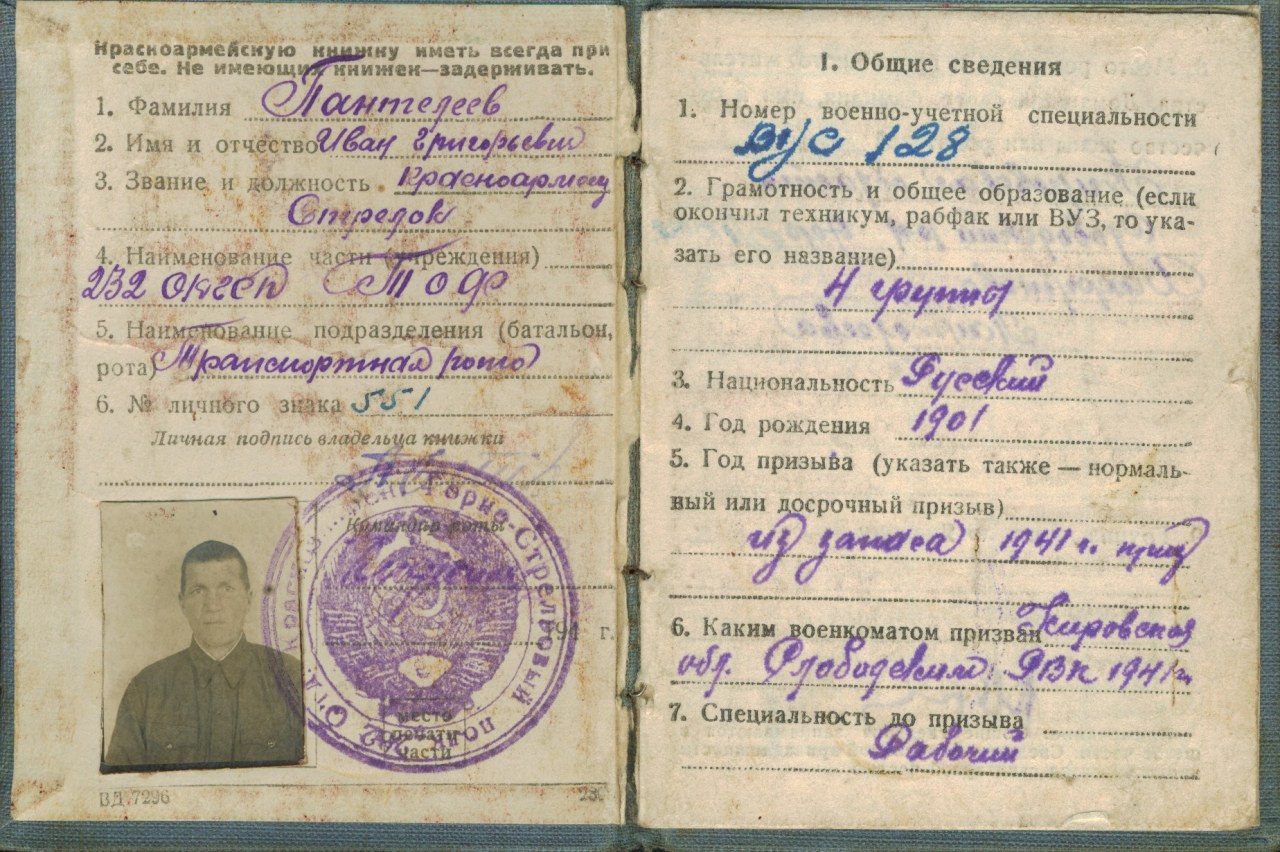 Красноармейскую книжку иметь всегда при
себе. Не имеющих книжек—задерживать.
1. Фамилия Пантелеев
2. Имя и отчество Иван Григорьевич
3. Звание и должность Красноармеец
Стрелок
4. Наименование части (учреждения)
232 ТОФ
5. Наименование подразделения (батальон,
рота) Транспортная рота
6. № личного знака 551
Личная подпись владельца книжки
Командир роты
194 г.
Горно-Стрелковый
место
печати
части
ВД.7296
1. Общие сведения
1. Номер военно-учетной специальности
ВУС 128
2. Грамотность и общее образование (если
окончил техникум, рабфак или ВУЗ, то ука-
зать его название)
4 группы
3. Национальность Русский
4. Год рождения 1901
5. Год призыва (указать также — нормаль-
ный или досрочный призыв)
из запаса 1941 г.
6. Каким военкоматом призван Кировская
обл. Слободским РВК 1941 г.
7. Специальность до призыва
Рабочий